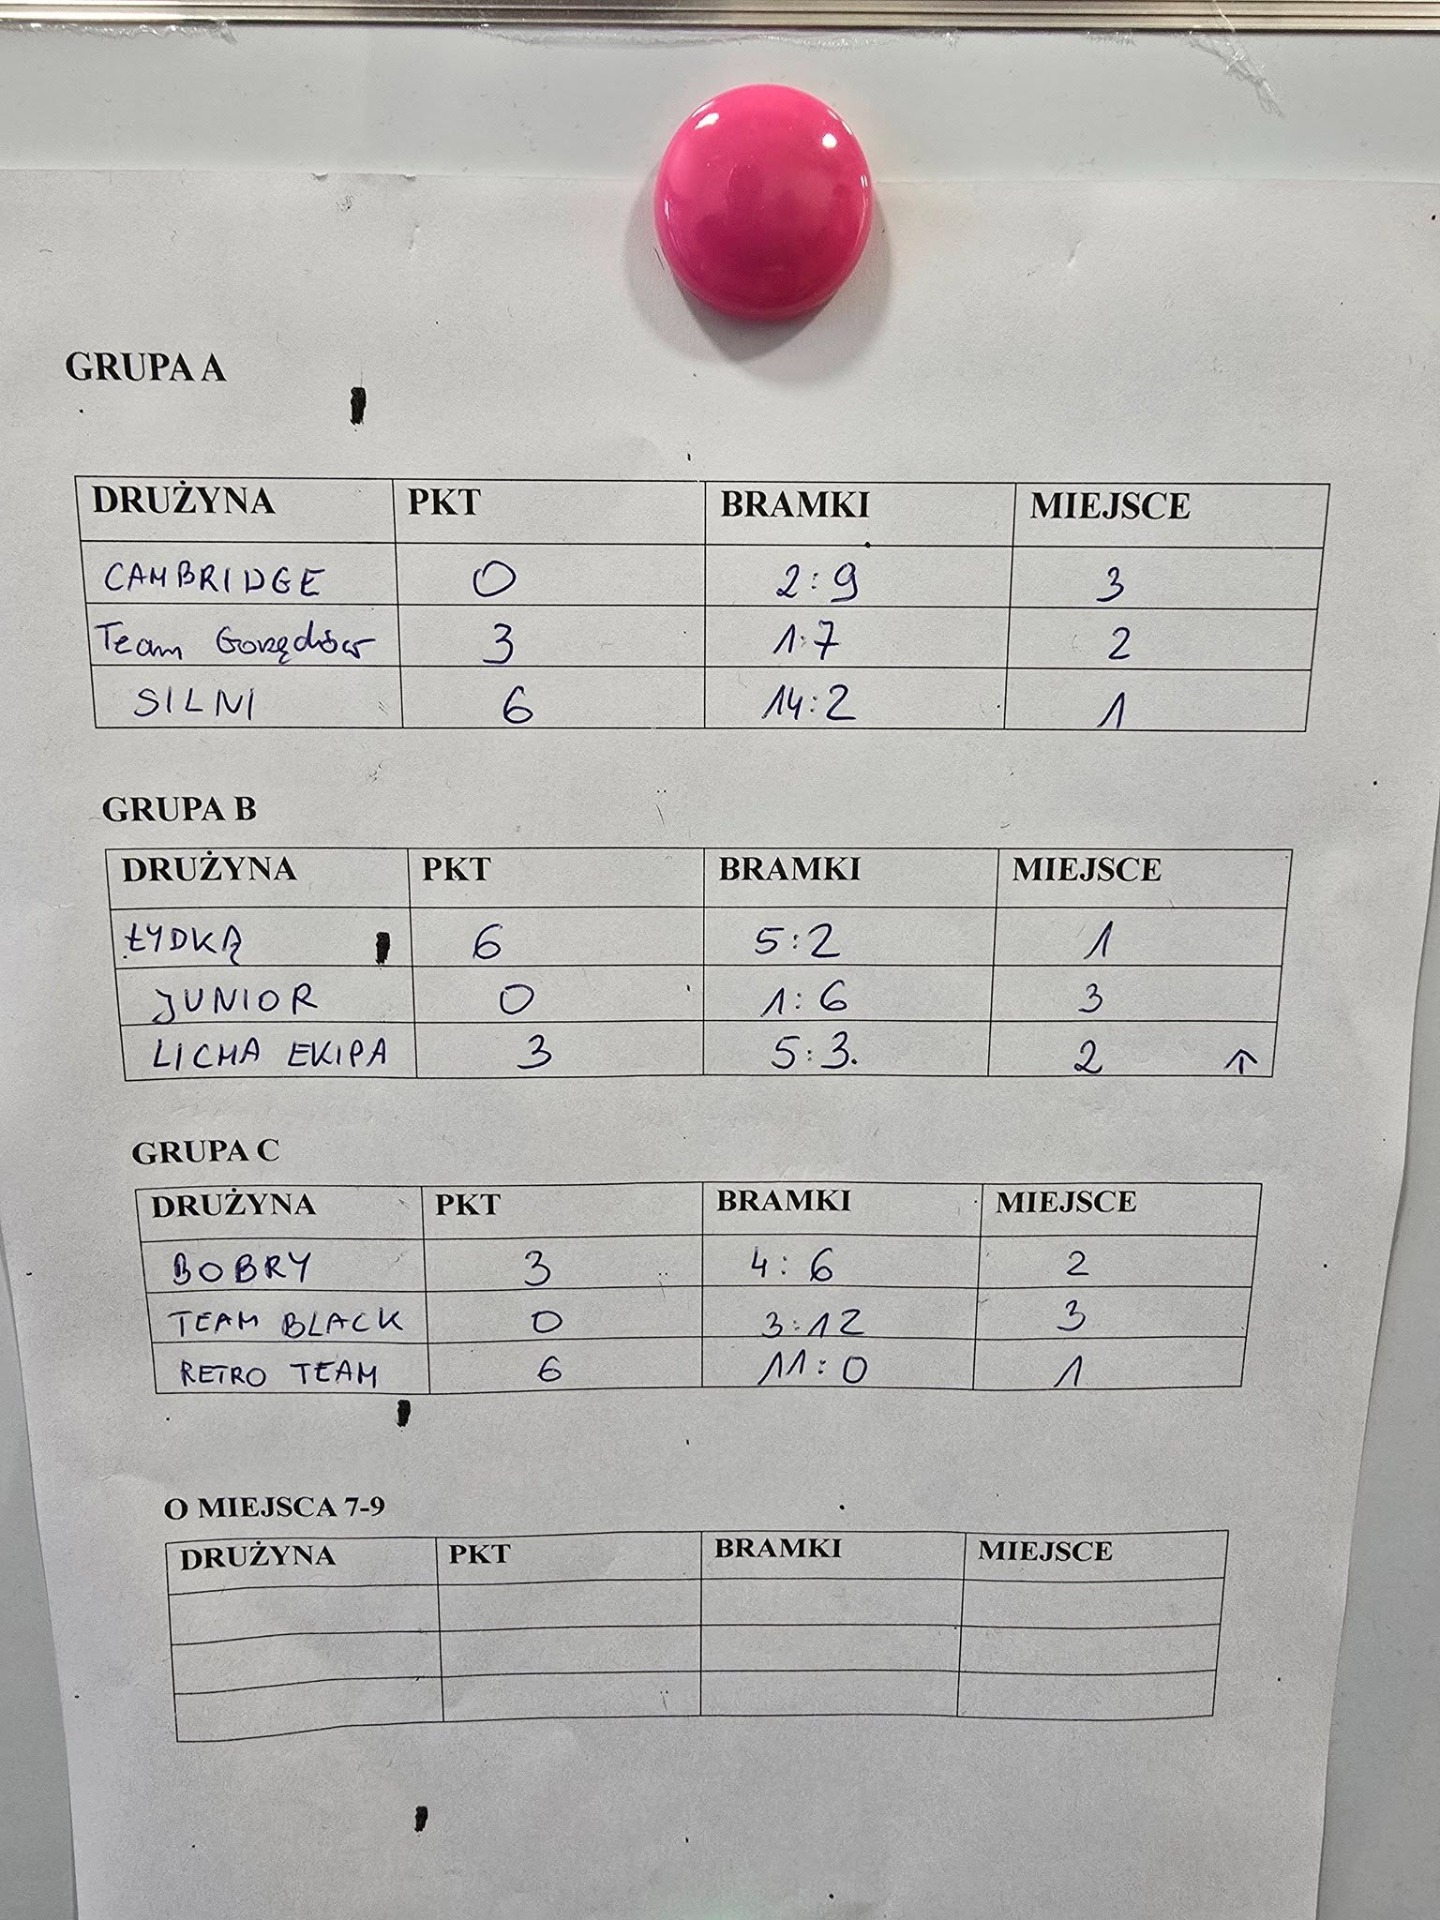 GRUPA A
DRUŻYNA PKT BRAMKI MIEJSCE
CAMBRIDGE 0 2:9 3
Team Gorzędów 3 1:7 2
SILNI 6 14:2 1
GRUPA B
DRUŻYNA PKT BRAMKI MIEJSCE
ŁYDKĄ 6 5:2 1
JUNIOR 0 1:6 3
LICHA EKIPA 3 5:3. 2 ↑
GRUPA C
DRUŻYNA PKT BRAMKI MIEJSCE
BOBRY 3 4:6 2
TEAM BLACK 0 3:12 3
RETRO TEAM 6 11:0 1
O MIEJSCA 7-9
DRUŻYNA PKT BRAMKI MIEJSCE